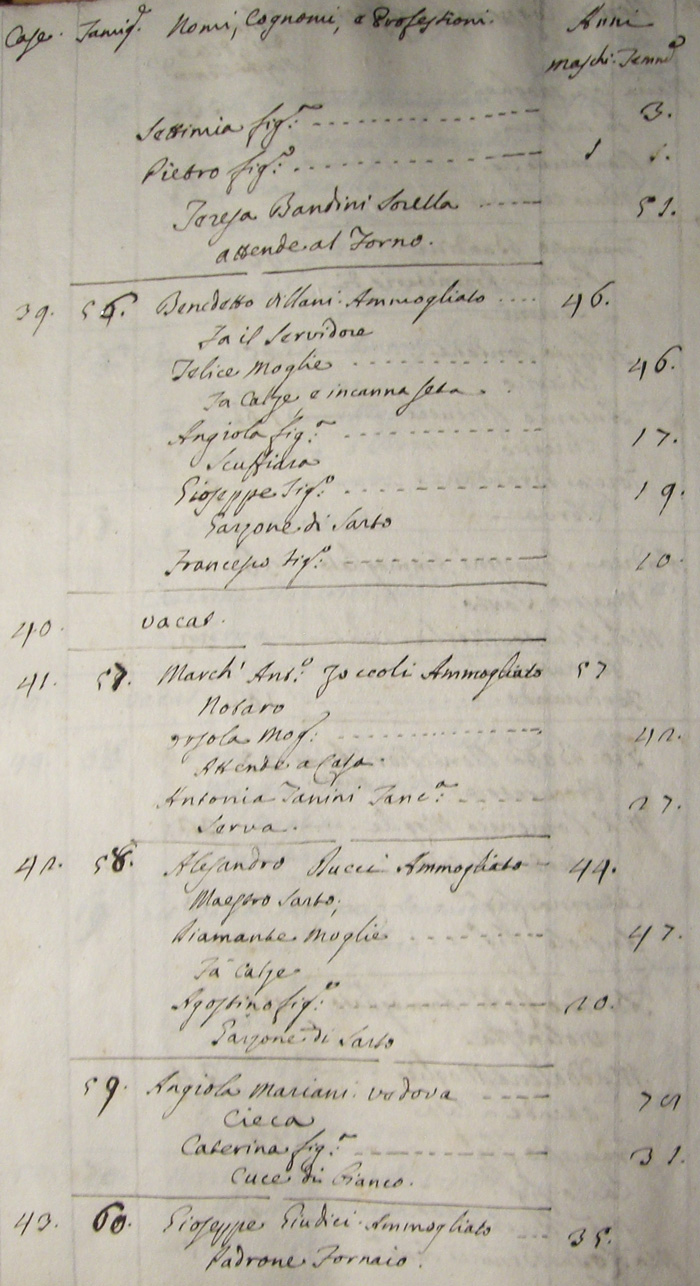 Case. Famigᵉ. Nomi, Cognomi, e Professioni. Anni
maschi. Femmᵉ
Settimia figᵃ: 3.
Pietro figᵒ: 1 1.
Teresa Bandini Sorella 51.
attende al Forno.
39. 56. Benedetto Villani Ammogliato 46.
Fa il Servidore
Felice Moglie 46.
Fa Calze e incanna seta
Angiola figᵃ: 17.
Scuffiara
Gioseppe figᵒ: 19.
Garzone di Sarto
Francesco figᵒ: 10.
40. vacat.
41. 57. March' Antᵒ: Zoccoli Ammogliato 57
Notaro
Orsola Mog: 42.
Attende a Casa.
Antonia Fanini Fancᵃ: 27.
Serva.
42. 58. Alesandro Bucci Ammogliato 44.
Maestro Sarto.
Diamante Moglie 47.
Fà Calze
Agostino figᵒ: 20.
Garzone di Sarto
59. Angiola Mariani vedova
Cieca
Caterina figᵃ: 31.
Cuce di bianco.
43. 60. Gioseppe Giudici Ammogliato 35.
Padrone Fornaio.